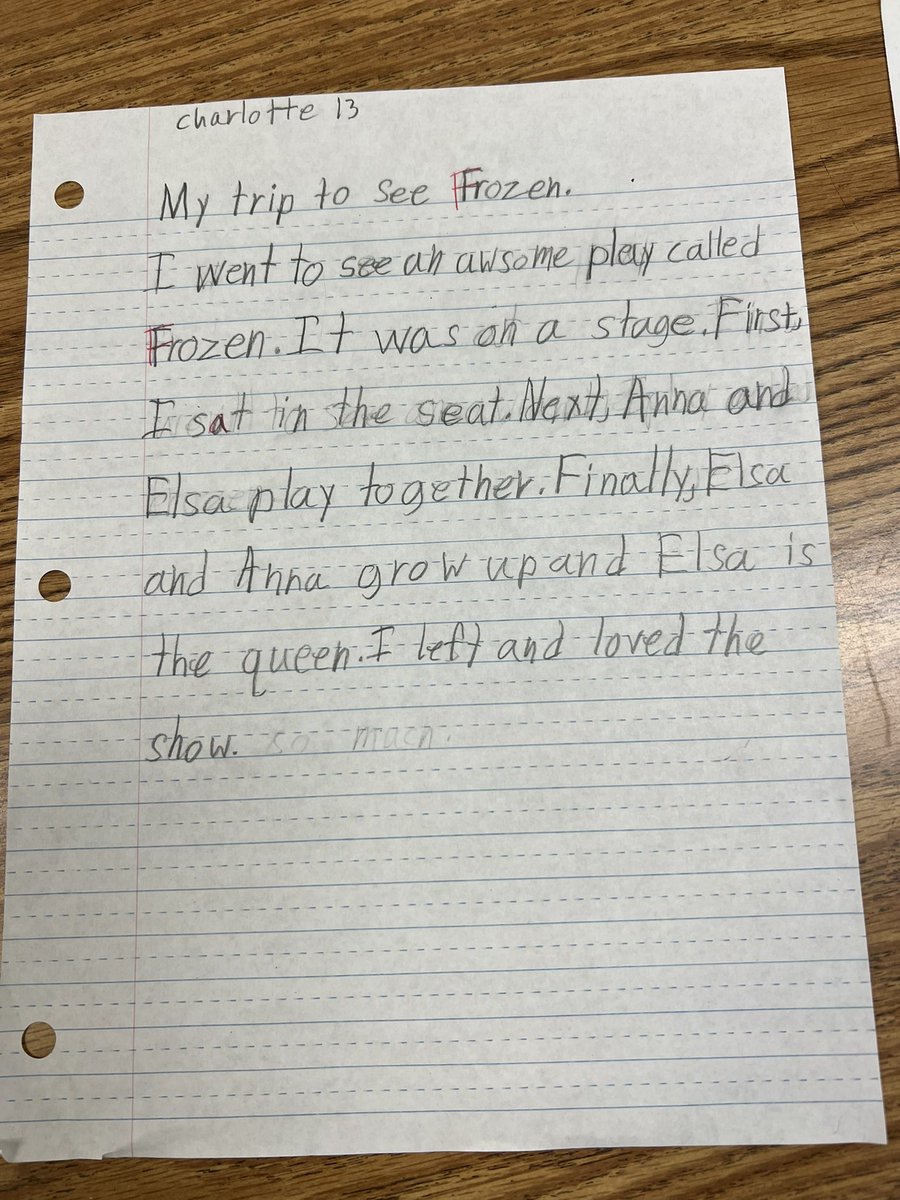 charlotte 13
My trip to see Frozen.
I went to see an awsome play called
Frozen. It was on a stage. First,
I sat in the seat. Next, Anna and
Elsa play together. Finally, Elsa
and Anna grow up and Elsa is
the queen. I left and loved the
show. so much.